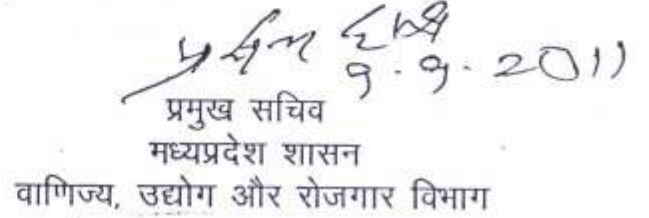 9.9.2011
प्रमुख सचिव
मध्यप्रदेश शासन
वाणिज्य, उद्योग और रोजगार विभाग